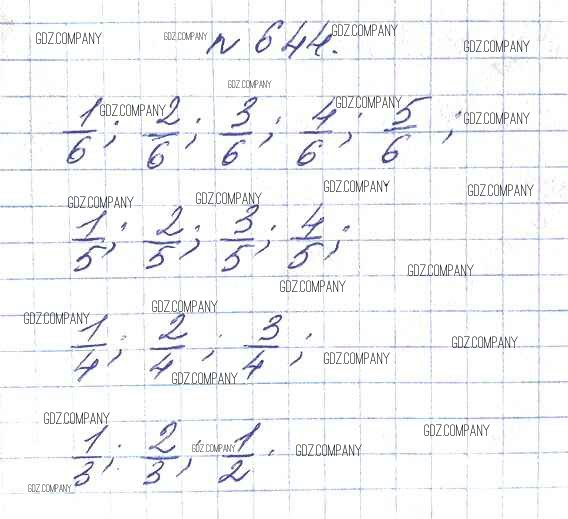 GDZ.COMPANY GDZ.COMPANY № 644. GDZ.COMPANY GDZ.COMPANY
GDZ.COMPANY
1/6; 2/6; 3/6; 4/6; 5/6;
GDZ.COMPANY GDZ.COMPANY GDZ.COMPANY
GDZ.COMPANY GDZ.COMPANY GDZ.COMPANY GDZ.COMPANY
1/5; 2/5; 3/5; 4/5;
GDZ.COMPANY
GDZ.COMPANY
GDZ.COMPANY GDZ.COMPANY
1/4; 2/4; 3/4;
GDZ.COMPANY GDZ.COMPANY GDZ.COMPANY
GDZ.COMPANY GDZ.COMPANY
1/3; 2/3; 1/2.
GDZ.COMPANY GDZ.COMPANY
GDZ.COMPANY